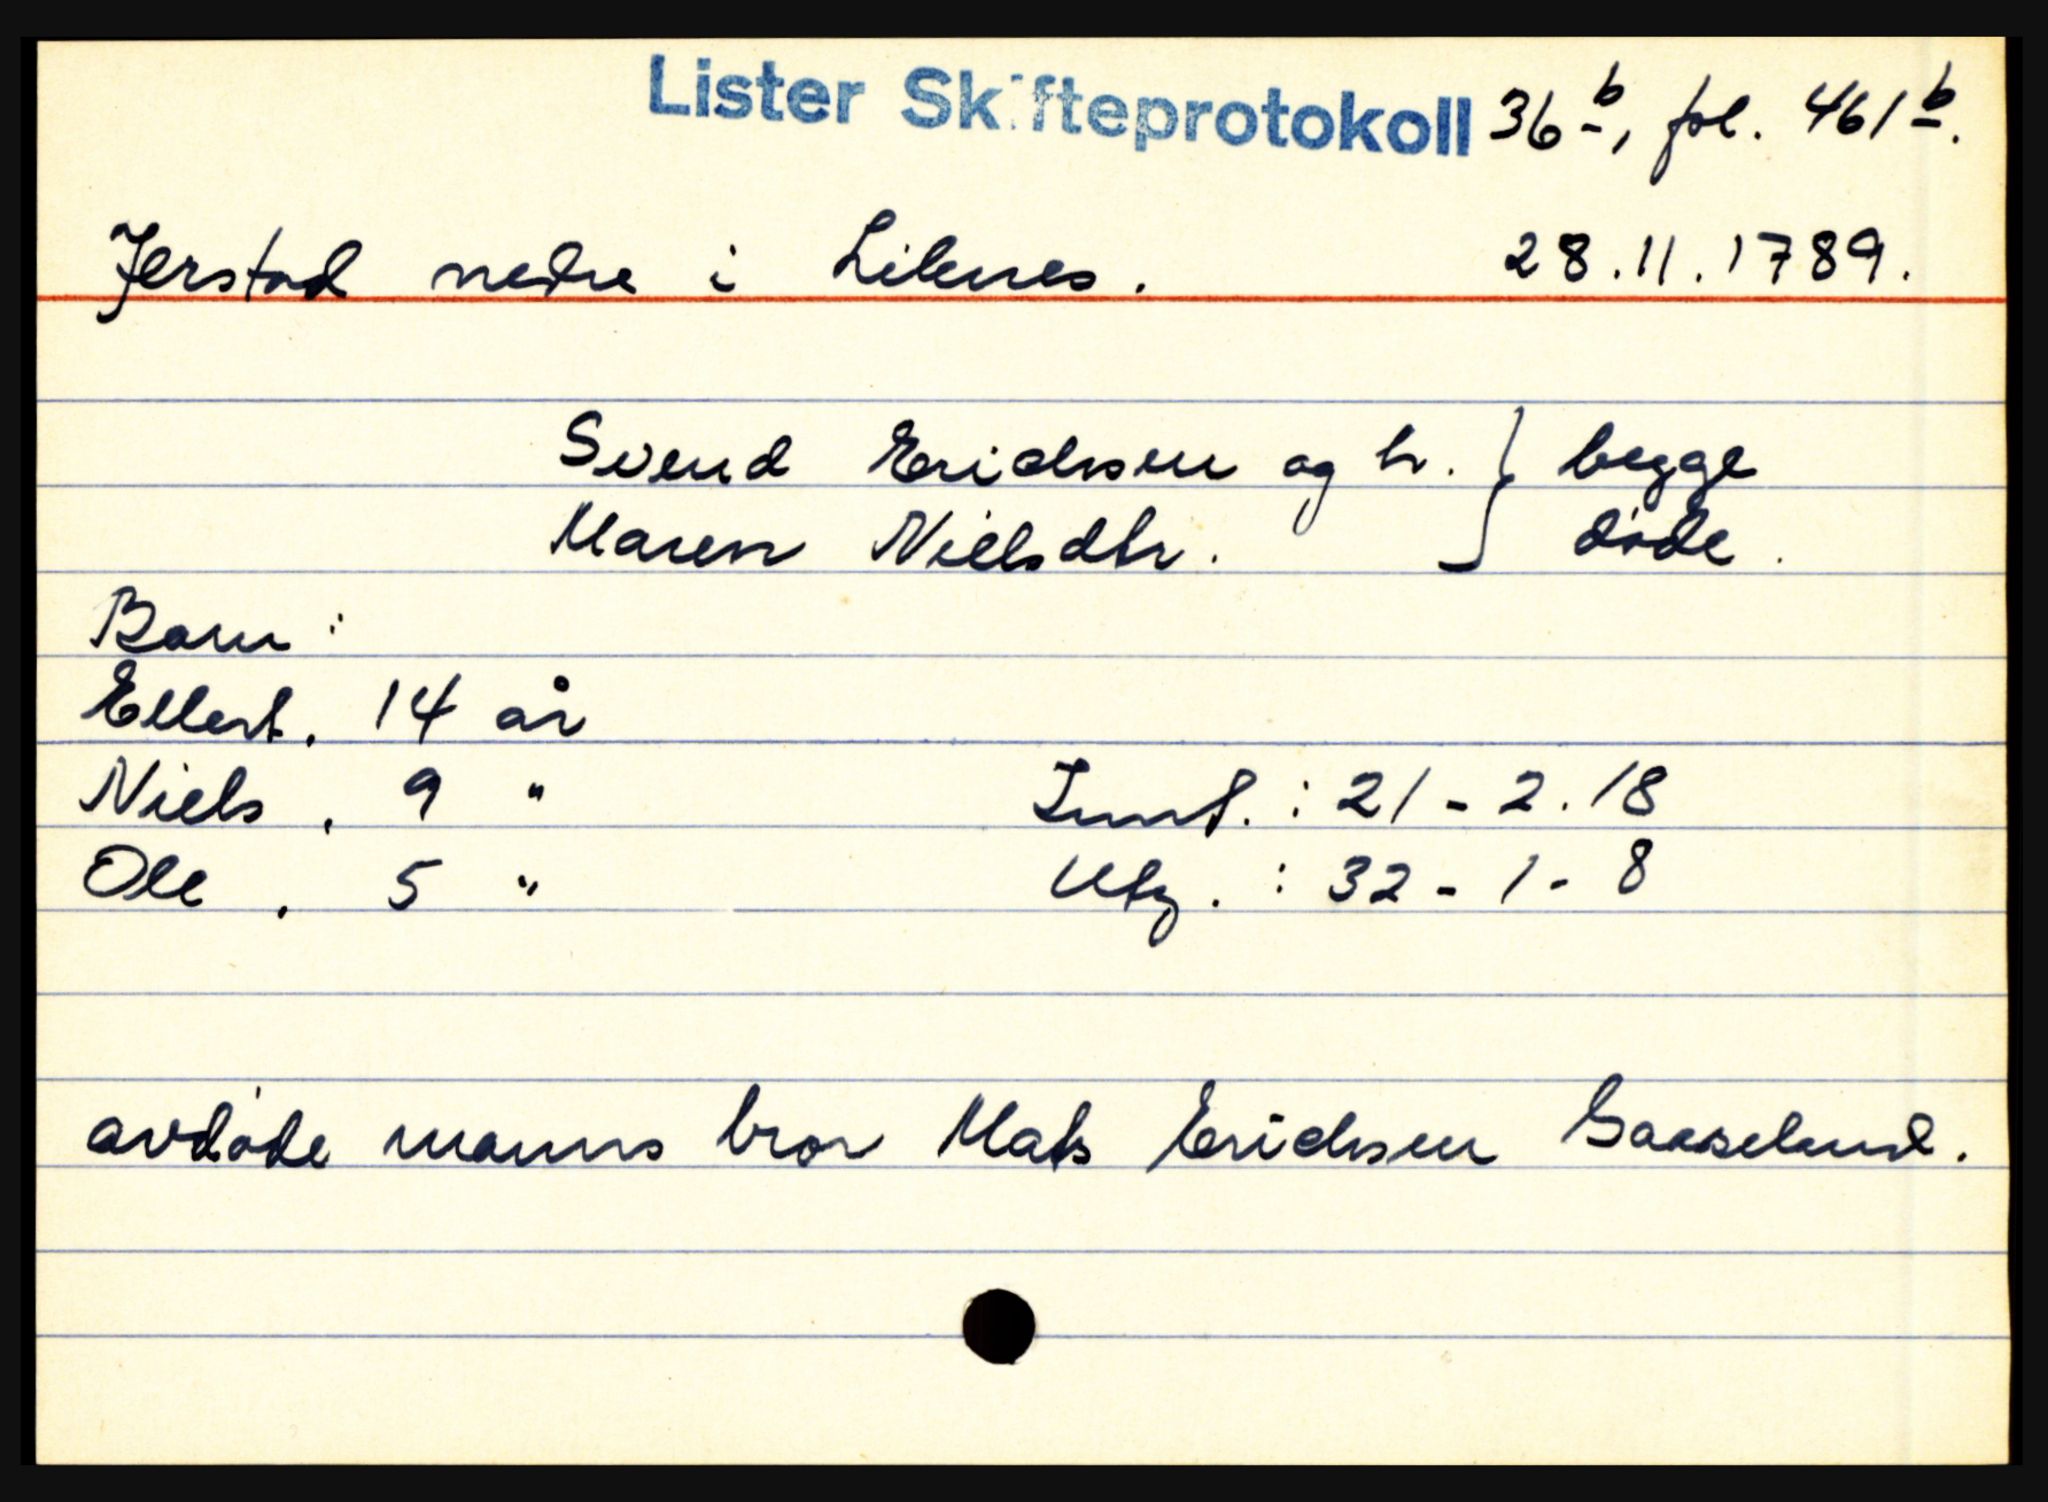 Lister Skifteprotokoll 36 b, fol. 461 b.
Jerstad nedre i Liknes. 28.11.1789.
Svend Erichsen og h. } begge
Maren Nielsdtr. døde.
Barn:
Ellert. 14 år
Niels. 9 " Innt. : 21 - 2. 18
Ole. 5 " Utg. : 32 - 1 - 8
avdøde manns bror Mats Erichsen Gaaseland.